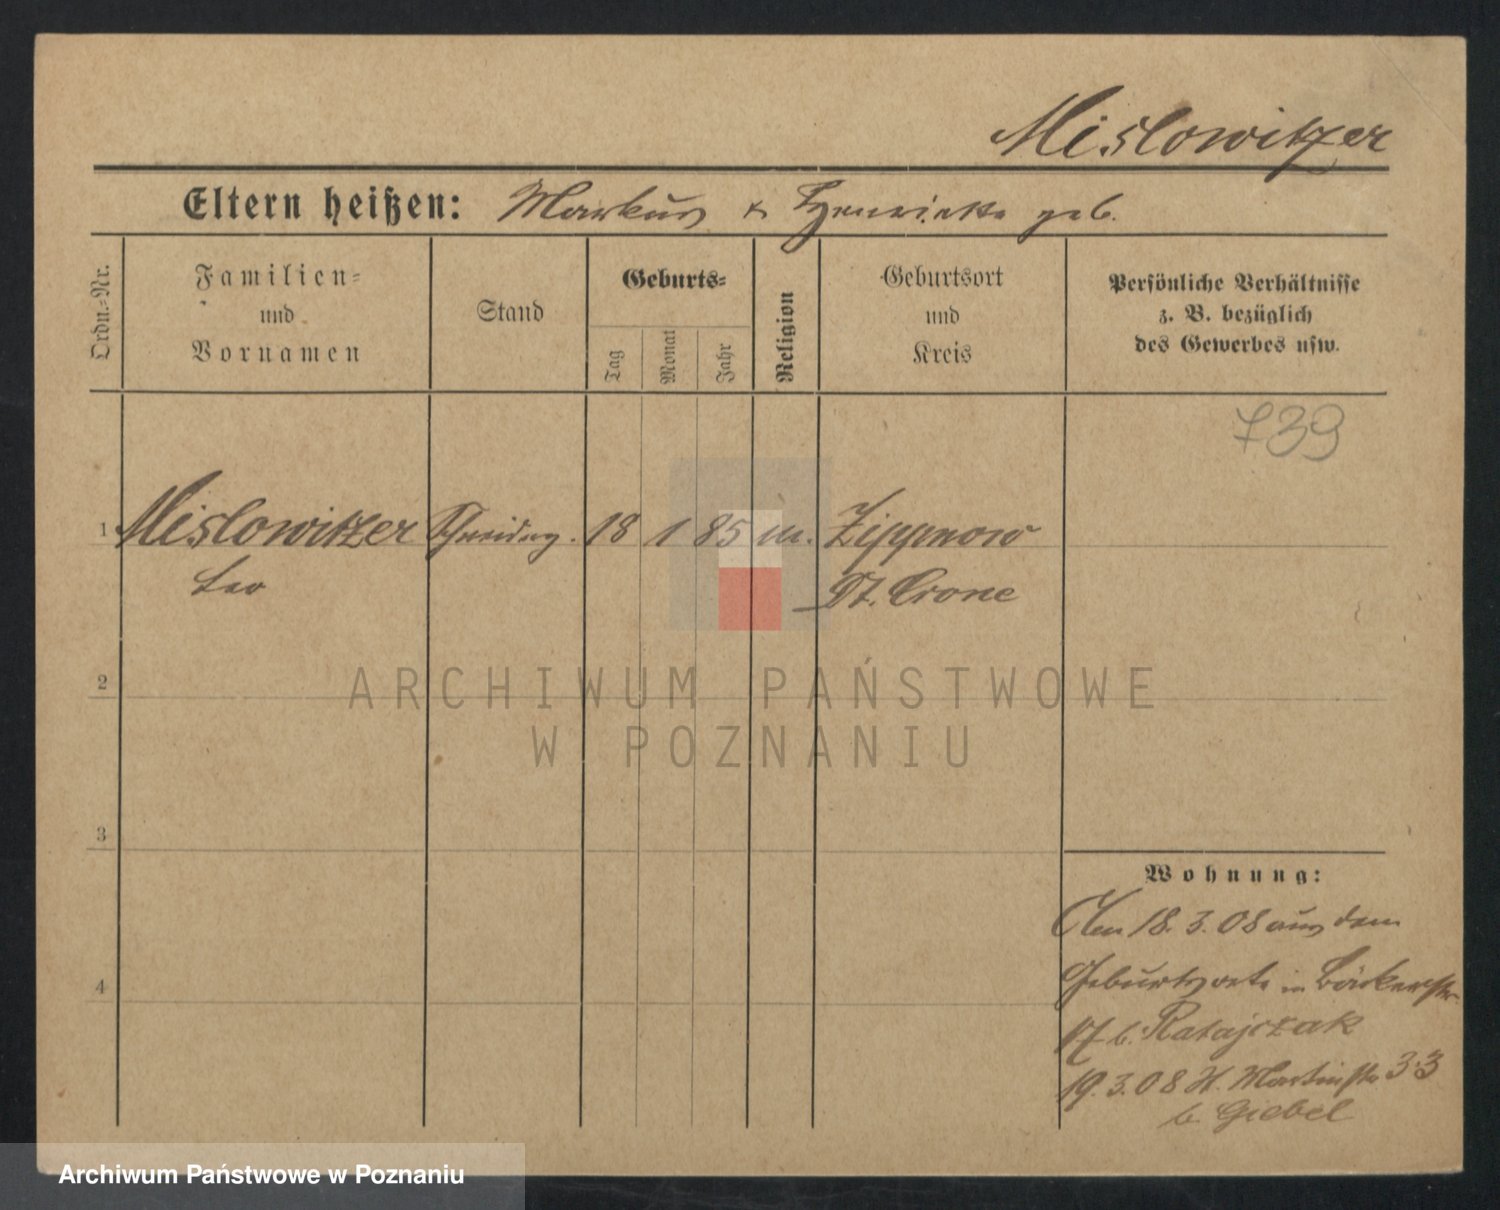 Mislowitzer
Eltern heißen: Markus & Henriette geb.
Ordn.-Nr.
Familien- und Vornamen
Stand
Geburts-
Tag
Monat
Jahr
Religion
Geburtsort und Kreis
Persönliche Verhältnisse z. B. bezüglich des Gewerbes usw.
739
1 Mislowitzer 18 1 85 m. Zippnow
Leo Dt. Crone
2
ARCHIWUM PAŃSTWOWE
W POZNANIU
3
Wohnung:
Am 18. 3. 08 aus dem
4
Geburtsorte in Bäckerstr.
17 b. Ratajczak
19. 3. 08 St. Martinstr. 33
b. Giebel
Archiwum Państwowe w Poznaniu